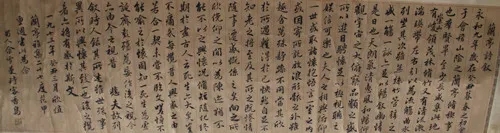 蘭亭詩敘
永和九年歲在癸丑暮春之初會
于會稽山陰之蘭亭脩禊事
也群賢畢至少長咸集此地有
崇山峻領茂林脩竹又有清流激
湍暎帶左右引以為流觴曲水
列坐其次雖無絲竹管絃之盛
一觴一詠亦足以暢敘幽情
是日也天朗氣清惠風和暢仰
觀宇宙之大俯察品類之盛
所以遊目騁懷足以極視聽之
娛信可樂也夫人之相與俯仰
一世或取諸懷抱悟言一室之內
或因寄所託放浪形骸之外雖
趣舍萬殊靜躁不同當其欣
於所遇暫得於己快然自足不
知老之將至及其所之既惓情
隨事遷感慨係之矣向之所
欣俛仰之間以為陳迹猶不
能不以之興懷況脩短隨化終
期於盡古人云死生亦大矣豈
不痛哉每攬昔人興感之由
若合一契未嘗不臨文嗟悼不
能喻之於懷固知一死生為虛
誕齊彭殤為妄作後之視今
亦由今之視昔悲夫故列
敘時人錄其所述雖世殊事
異所以興懷其致一也後之攬
者亦將有感於斯文